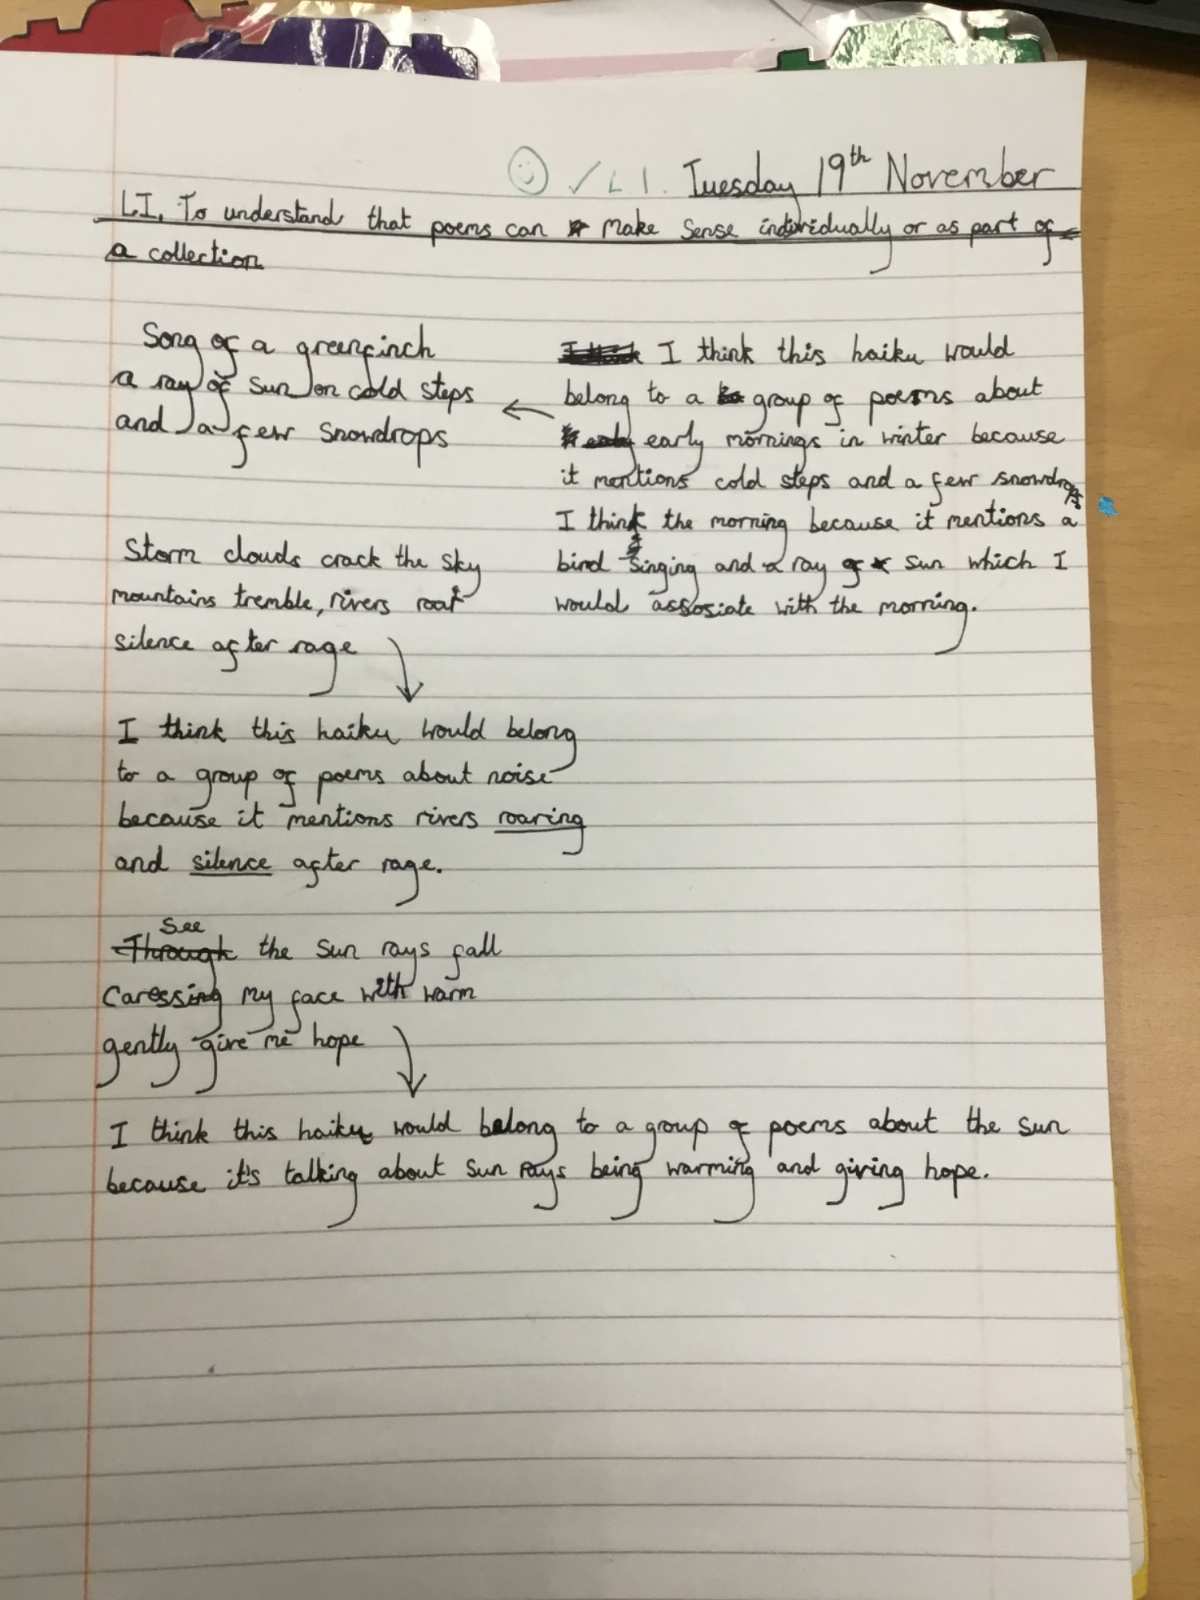 ✓ L I. Tuesday 19th November
LI, To understand that poems can make sense individually or as part of
a collection
Song of a greenfinch
a ray of sun on cold steps
and a few snowdrops
I think this haiku would
belong to a group of poems about
early mornings in winter because
it mentions cold steps and a few snowdrops
I think the morning because it mentions a
bird singing and a ray of sun which I
would assosiate with the morning.
Storm clouds crack the sky
mountains tremble, rivers roar
silence after rage
I think this haiku would belong
to a group of poems about noise
because it mentions rivers roaring
and silence after rage.
See
Through the sun rays fall
Caressing my face with warm
gently give me hope
I think this haiku would belong to a group of poems about the sun
because it's talking about sun rays being warming and giving hope.